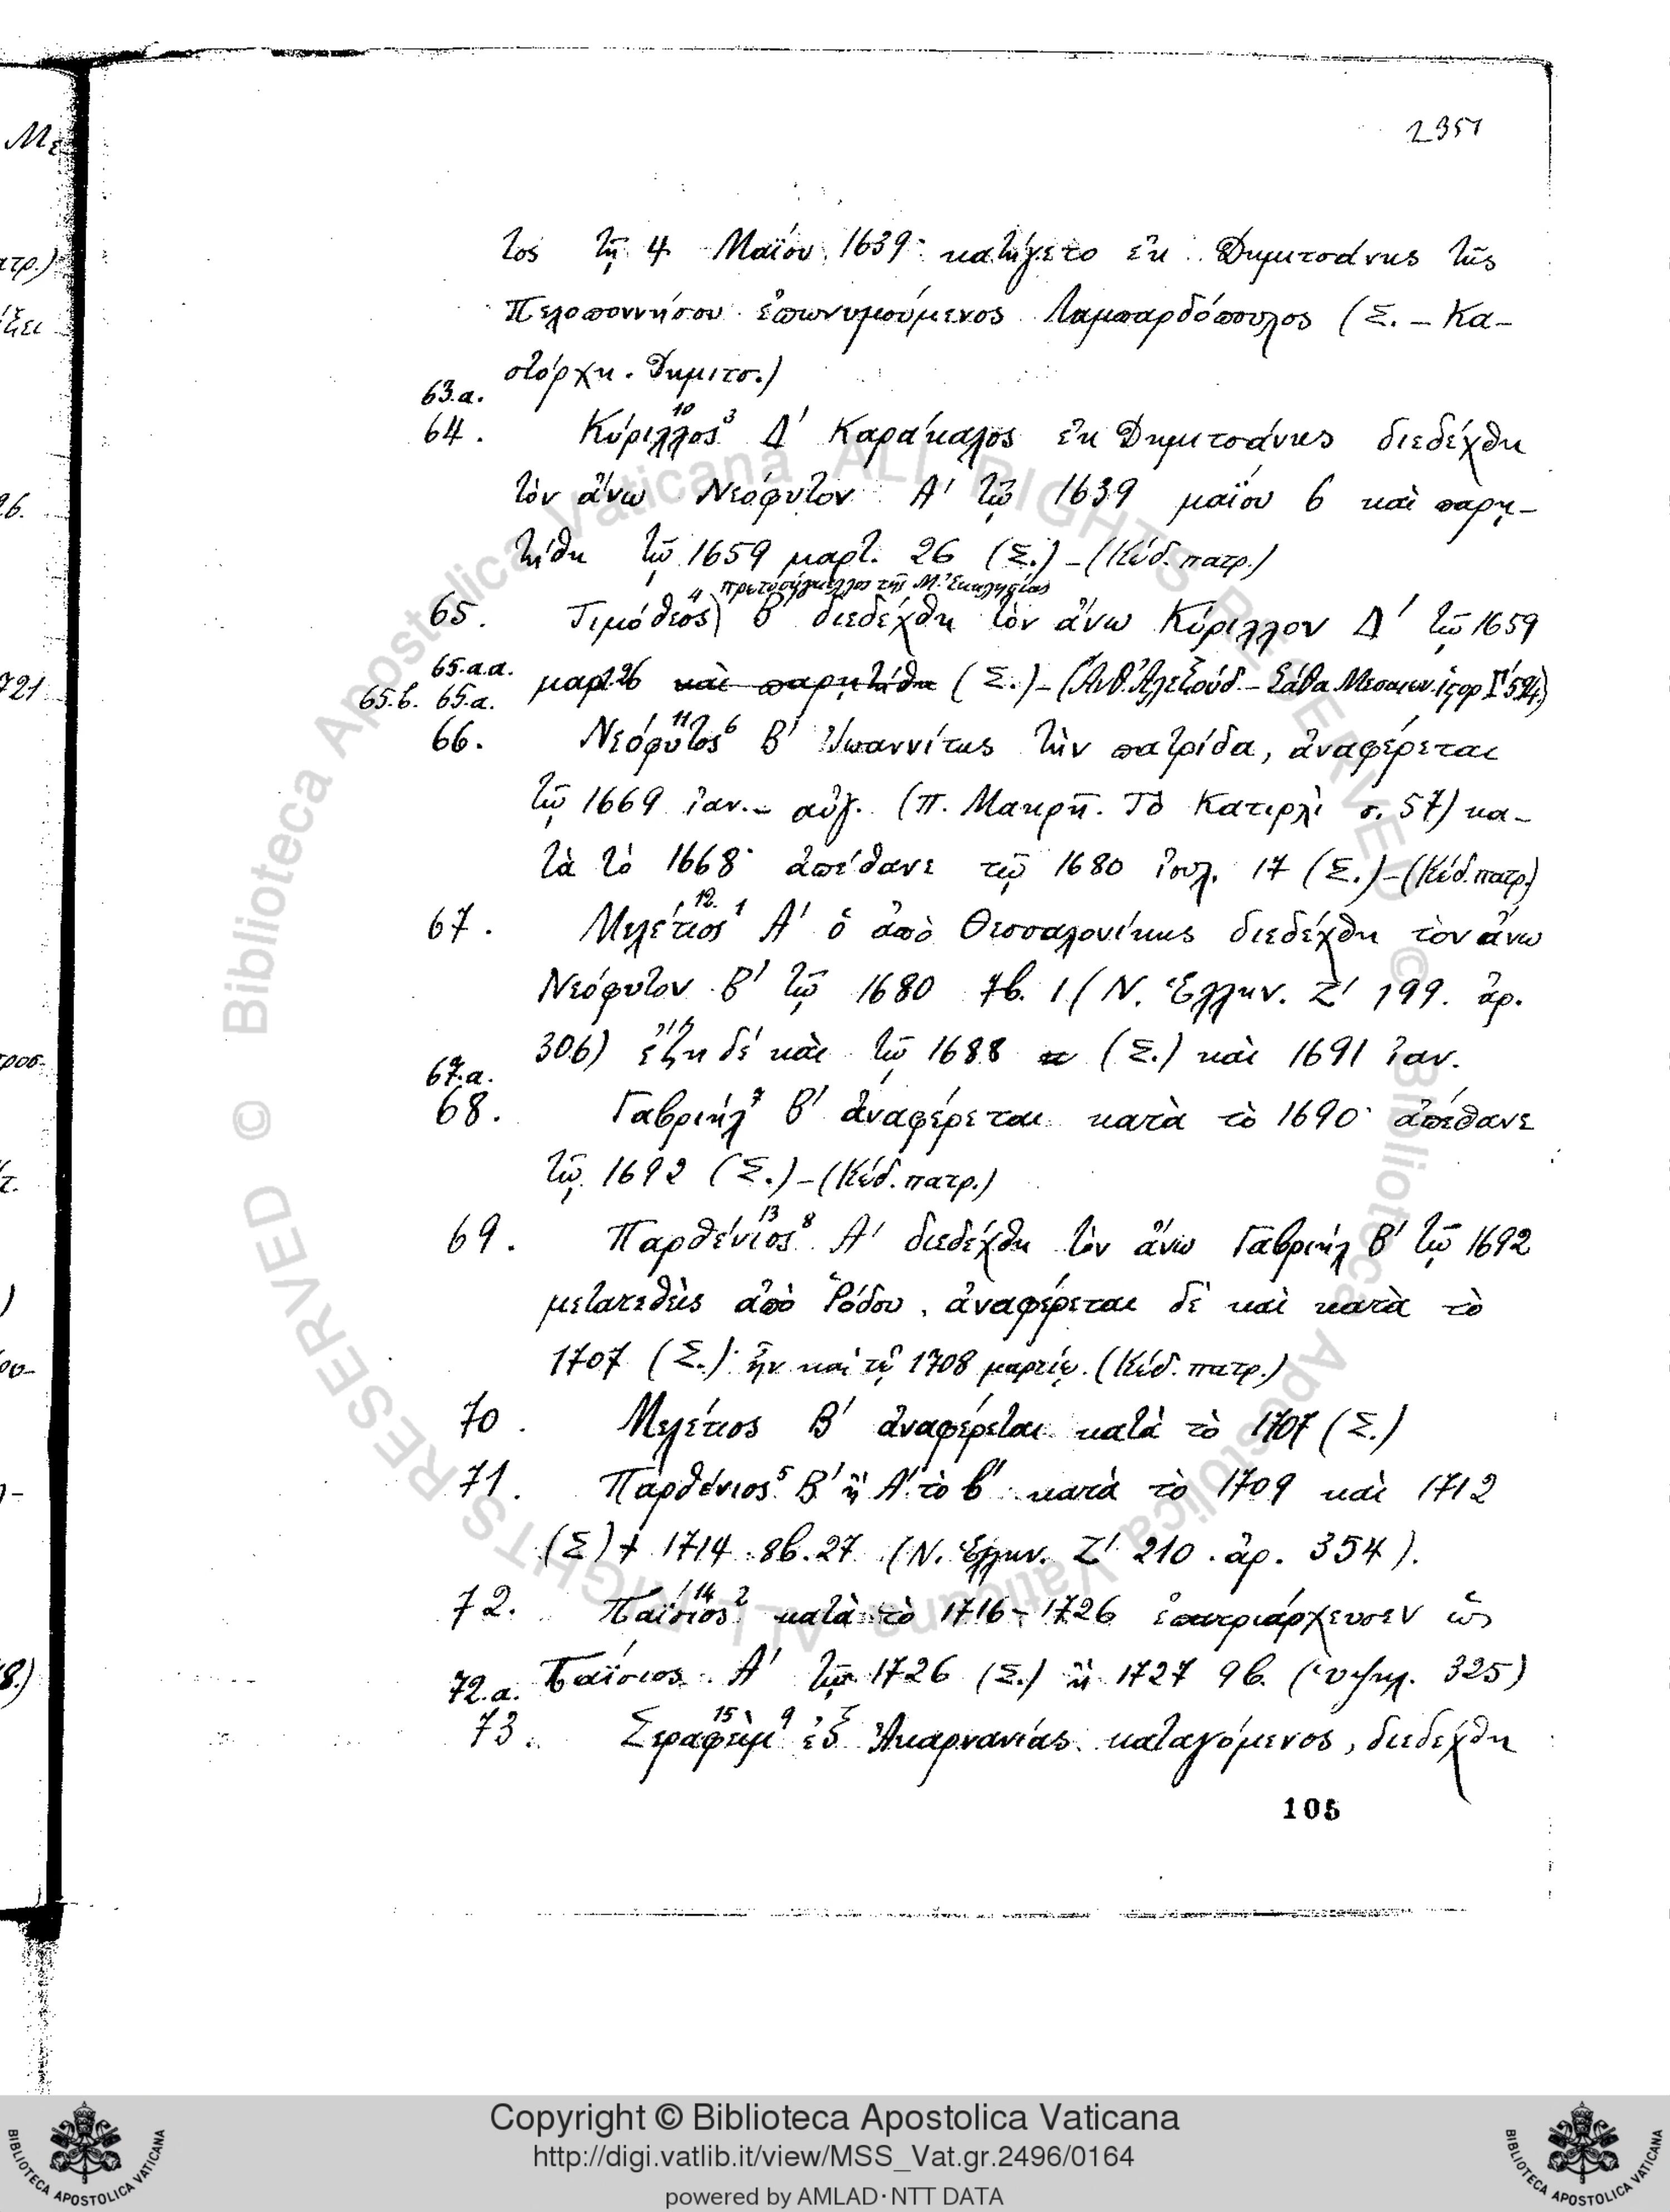 2351
τος τῇ 4 Μαΐου 1639· κατήγετο ἐκ Δημιτσάνης τῆς
Πελοποννήσου ἐπωνυμούμενος Λαμπαρδόπουλος (Σ. – Κα-
στόρχη. Δημιτσ.)
63.α.
64. Κύριλλος 10 3 Δ' Καράκαλος ἐκ Δημιτσάνης διεδέχθη
τὸν ἄνω Νεόφυτον Α' τῷ 1639 μαΐου 6 καὶ παρῃ-
τήθη τῷ 1659 μαρτ. 26 (Σ.) – (Κώδ. πατρ.)
πρωτοσύγκελλος τῆς Μ. Ἐκκλησίας
65. Τιμόθεος 4) Β' διεδέχθη τὸν ἄνω Κύριλλον Δ' τῷ 1659
65.α.α. μαρτ. 26 καὶ παρῃτήθη (Σ.) – (Ἀνθ. Ἀλεξούδ. – Σάθα Μεσαιων. ἱστορ Γ' 594)
65.β. 65.α.
66. Νεόφυτος 11 6 Β' Ἰωαννίτης τὴν πατρίδα, ἀναφέρεται
τῷ 1669 ἰαν. – αὐγ. (Π. Μακρῆ. Τὸ Κατιρλὶ σ. 57) κα-
τὰ τὸ 1668· ἀπέθανε τῷ 1680 ἰουλ. 17 (Σ.) – (Κώδ. πατρ.)
67. Μελέτιος 12 1 Α' ὁ ἀπὸ Θεσσαλονίκης διεδέχθη τὸν ἄνω
Νεόφυτον Β' τῷ 1680 7β. 1 (Ν. Ἑλλην. Ζ' 199. ἀρ.
306) ἔζη δὲ καὶ τῷ 1688 (Σ.) καὶ 1691 ἰαν.
67.α.
68. Γαβριήλ 7 Β' ἀναφέρεται κατὰ τὸ 1690· ἀπέθανε
τῷ 1692 (Σ.) – (Κώδ. πατρ.)
69. Παρθένιος 13 8 Α' διεδέχθη τὸν ἄνω Γαβριήλ Β' τῷ 1692
μετατεθεὶς ἀπὸ Ῥόδου, ἀναφέρεται δὲ καὶ κατὰ τὸ
1707 (Σ.)· ἦν καὶ τῷ 1708 μαρτίῳ. (Κώδ. πατρ.)
70. Μελέτιος Β' ἀναφέρεται κατὰ τὸ 1707 (Σ.)
71. Παρθένιος 5 Β' ἢ Α' τὸ β' κατὰ τὸ 1709 καὶ 1712
(Σ) † 1714 8β. 27 (Ν. Ἑλλην. Ζ' 210. ἀρ. 354).
72. Παΐσιος 14 2 κατὰ τὸ 1716 – 1726 ἐπατριάρχευσεν ὡς
Παΐσιος Α' τῷ 1726 (Σ.) ἢ 1727 9β. (Ὑψηλ. 325)
72.α.
73. Σεραφεὶμ 15 9 ἐξ Ἀκαρνανίας καταγόμενος, διεδέχθη
105
© Biblioteca Apostolica Vaticana ALL RIGHTS RESERVED © Biblioteca Apostolica Vaticana ALL RIGHTS RESERVED
Copyright © Biblioteca Apostolica Vaticana
http://digi.vatlib.it/view/MSS_Vat.gr.2496/0164
powered by AMLAD·NTT DATA
BIBLIOTECA APOSTOLICA VATICANA
BIBLIOTECA APOSTOLICA VATICANA